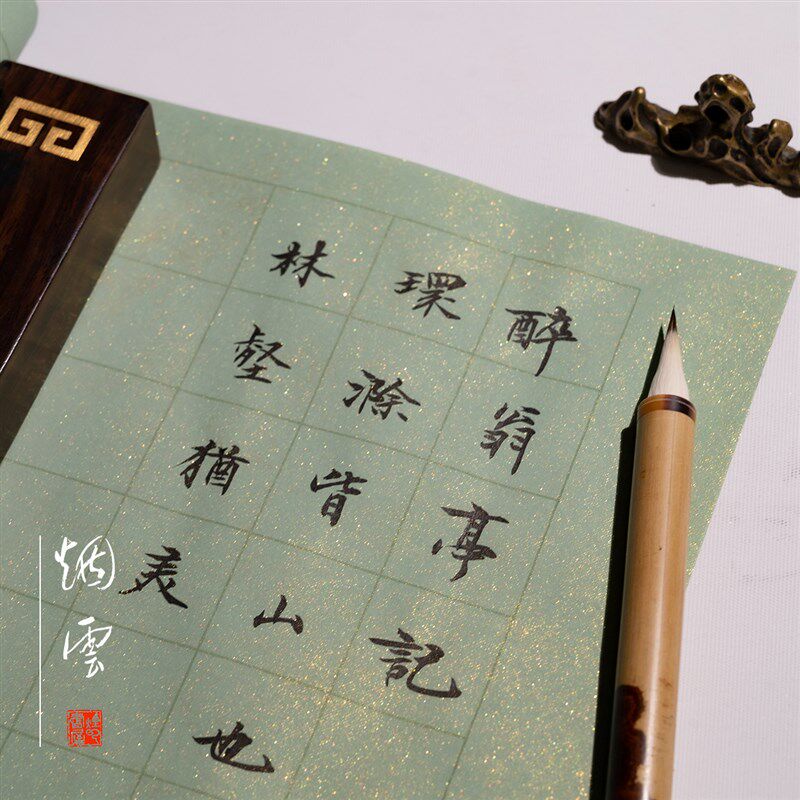 醉翁亭記
環滁皆山也
林壑猶美
烟雲